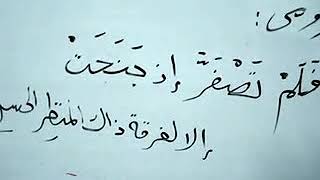 فَلَمْ تَصْفَرَّ إذ جَنَحَتْ
إلا لفرقة ذاك المنظر الحسن